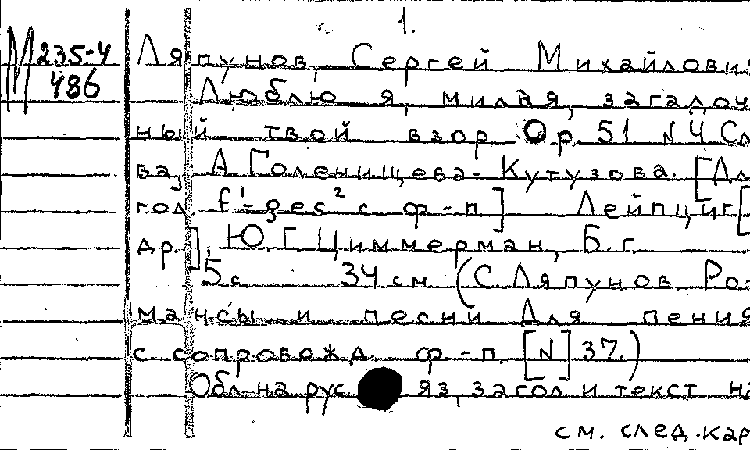 1.
М 235-4
486
Ляпунов, Сергей Михайлович
Люблю я, милая, загадоч
ный твой взор. Ор. 51 N 4 Сло
ва А. Голенищева-Кутузова. [Для
гол. f'-ges² с ф-п.] Лейпциг [
др.], Ю. Г. Циммерман, Б. г.
5 с. 34 см (С. Ляпунов. Ро
мансы и песни для пения
с сопровожд. ф-п. [N] 37.)
Обл. на рус. яз., загол. и текст на
см. след. кар